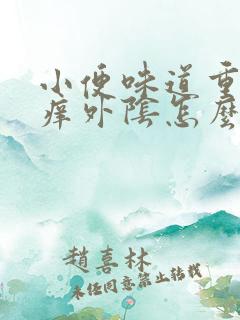 小便味道重
痒外陰怎麼
趙喜林
未經同意禁止转载